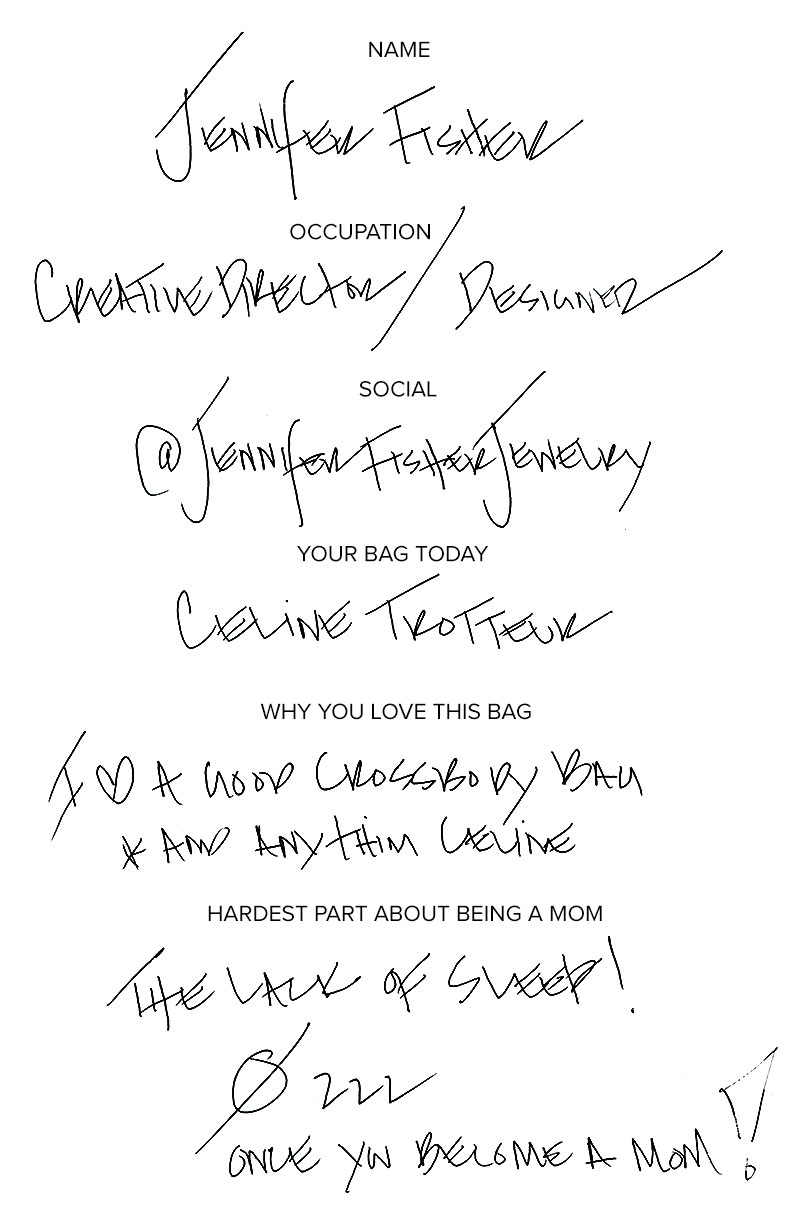 NAME
JENNIFER FISHER
OCCUPATION
CREATIVE DIRECTOR / DESIGNER
SOCIAL
@JENNIFERFISHERJEWELRY
YOUR BAG TODAY
CELINE TROTTEUR
WHY YOU LOVE THIS BAG
I ♡ A GOOD CROSSBODY BAG
* AND ANYTHING CELINE
HARDEST PART ABOUT BEING A MOM
THE LACK OF SLEEP!
Ø ZZZ
ONCE YOU BECOME A MOM!